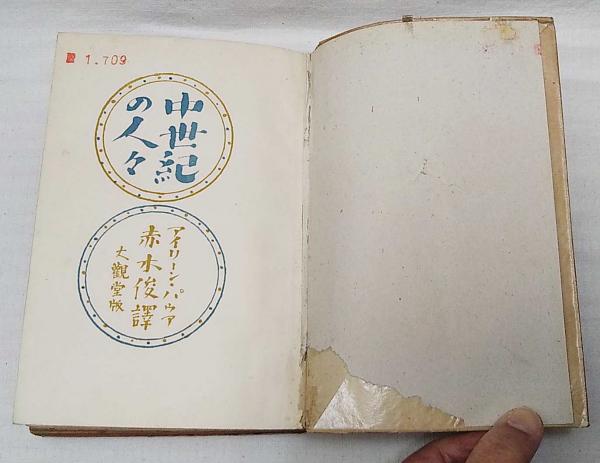 1.709
中世紀
の人々
アイリーン・パウア
赤木俊譯
大觀堂版